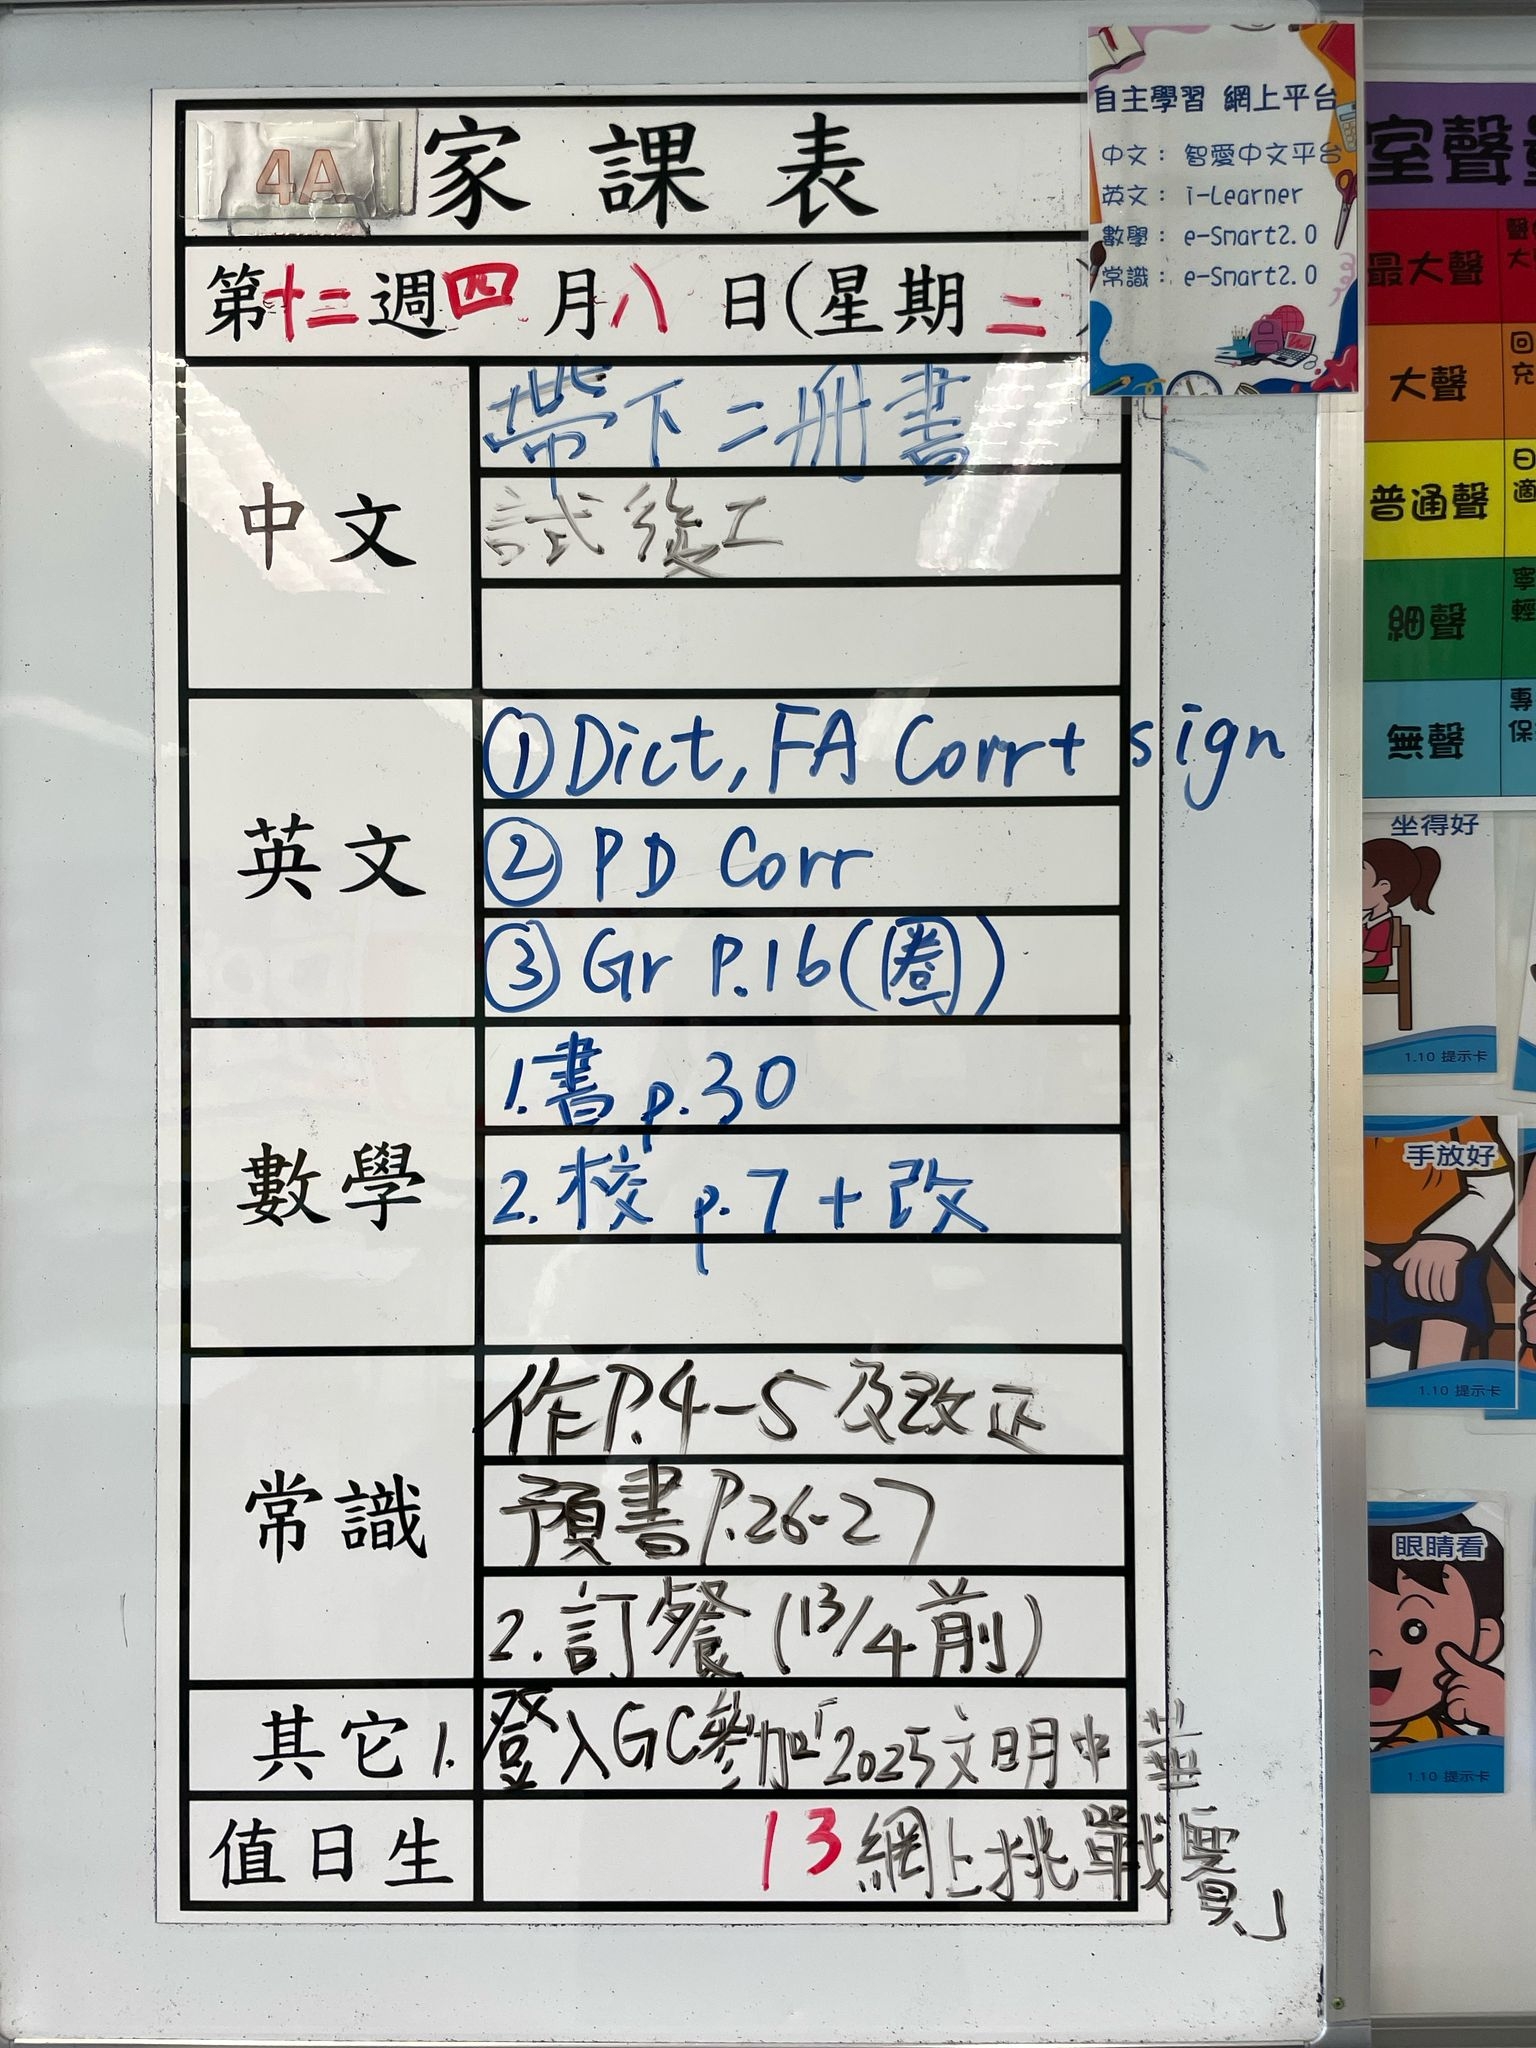 4A 家課表
第十二週四月八日(星期二
自主學習 網上平台
中文: 智愛中文平台
英文: i-Learner
數學: e-Smart2.0
常識: e-Smart2.0
中文
帶下二冊書
試後工
英文
①Dict, FA Corr+ sign
② PD Corr
③ Gr P.16(圈)
數學
1.書 p.30
2.校 p.7+改
常識
作P.4-5及改正
預書P.26-27
2.訂餐(13/4前)
其它 1.登入GC參加「2025文明中華
值日生 13 網上挑戰賽」
室聲
最大聲
大聲
普通聲
細聲
無聲
坐得好
1.10 提示卡
手放好
1.10 提示卡
眼睛看
1.10 提示卡